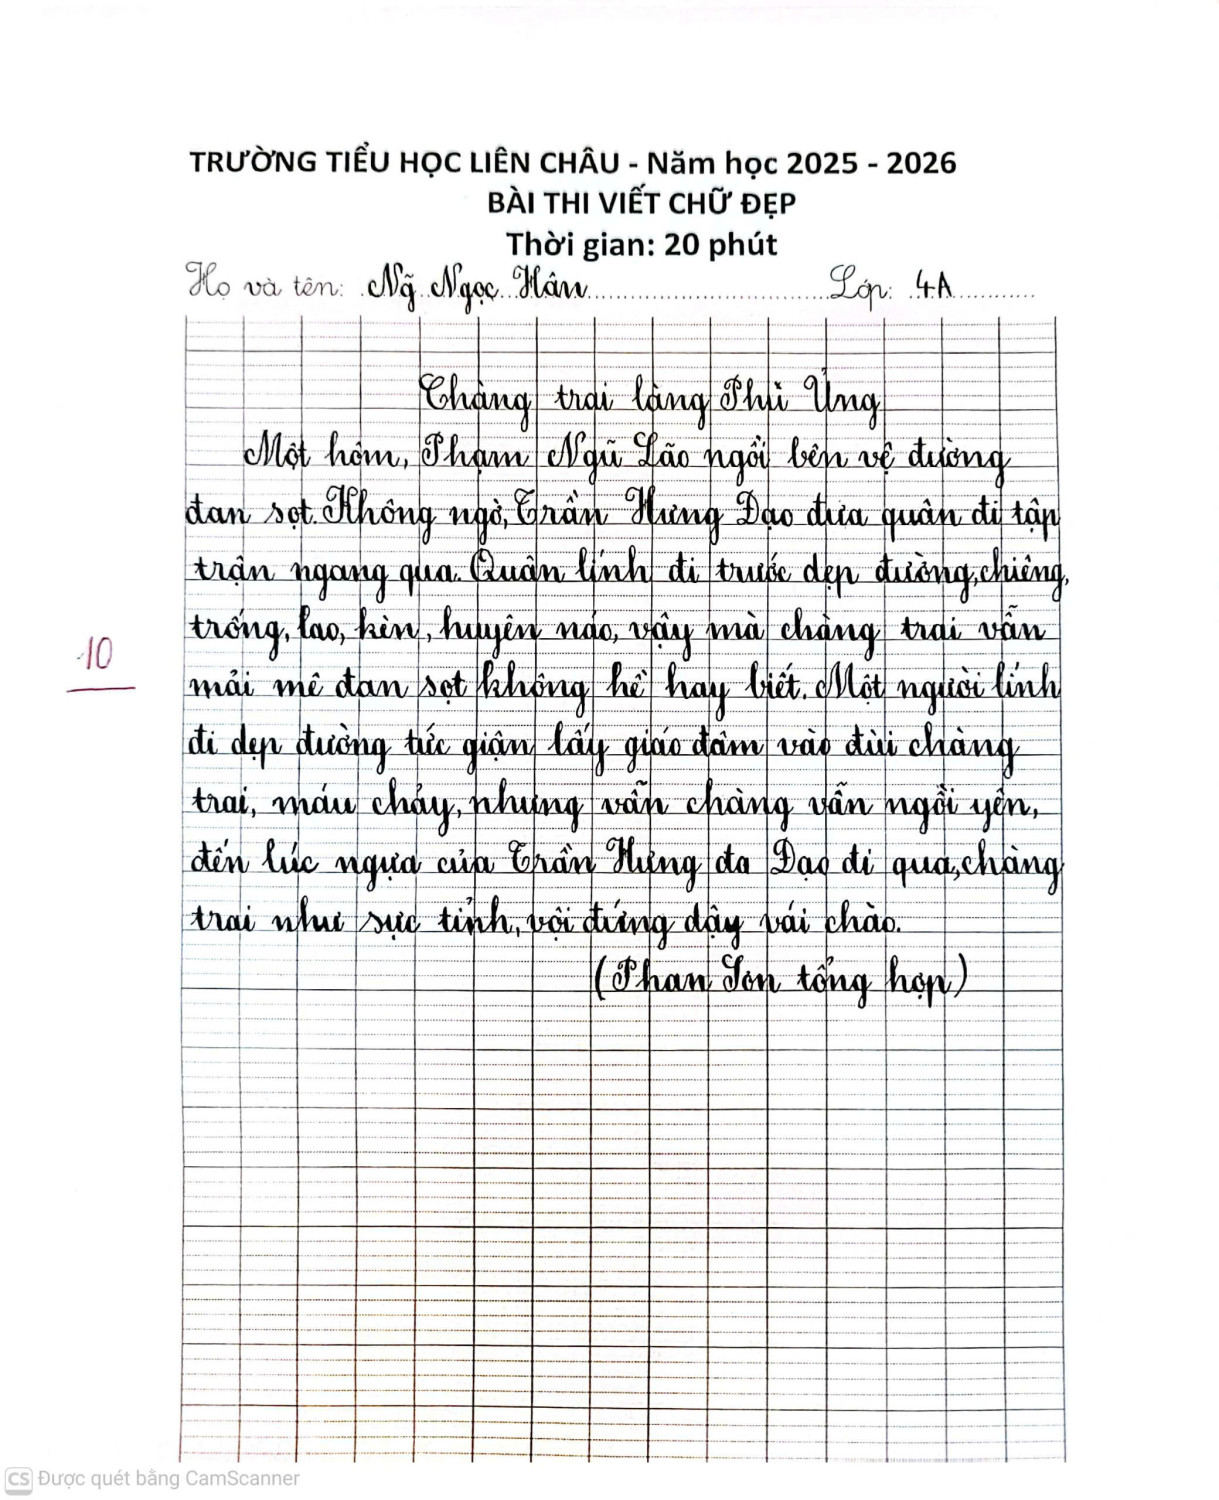 TRƯỜNG TIỂU HỌC LIÊN CHÂU - Năm học 2025 - 2026
BÀI THI VIẾT CHỮ ĐẸP
Thời gian: 20 phút
Họ và tên: Ng̃ Ngọc Hân Lớp: 4A
Chàng trai làng Phù Ủng
Một hôm, Phạm Ngũ Lão ngồi bên vệ đường
đan sọt. Không ngờ, Trần Hưng Đạo đưa quân đi tập
trận ngang qua. Quân lính đi trước dẹp đường, chiêng,
trống, lao, kèn, huyên náo, vậy mà chàng trai vẫn
10
mải mê đan sọt không hề hay biết. Một người lính
đi dẹp đường tức giận lấy giáo đâm vào đùi chàng
trai, máu chảy, nhưng vẫn chàng vẫn ngồi yên,
đến lúc ngựa của Trần Hưng đa Đạo đi qua, chàng
trai như sực tỉnh, vội đứng dậy vái chào.
(Phan Sơn tổng hợp)
CS Được quét bằng CamScanner